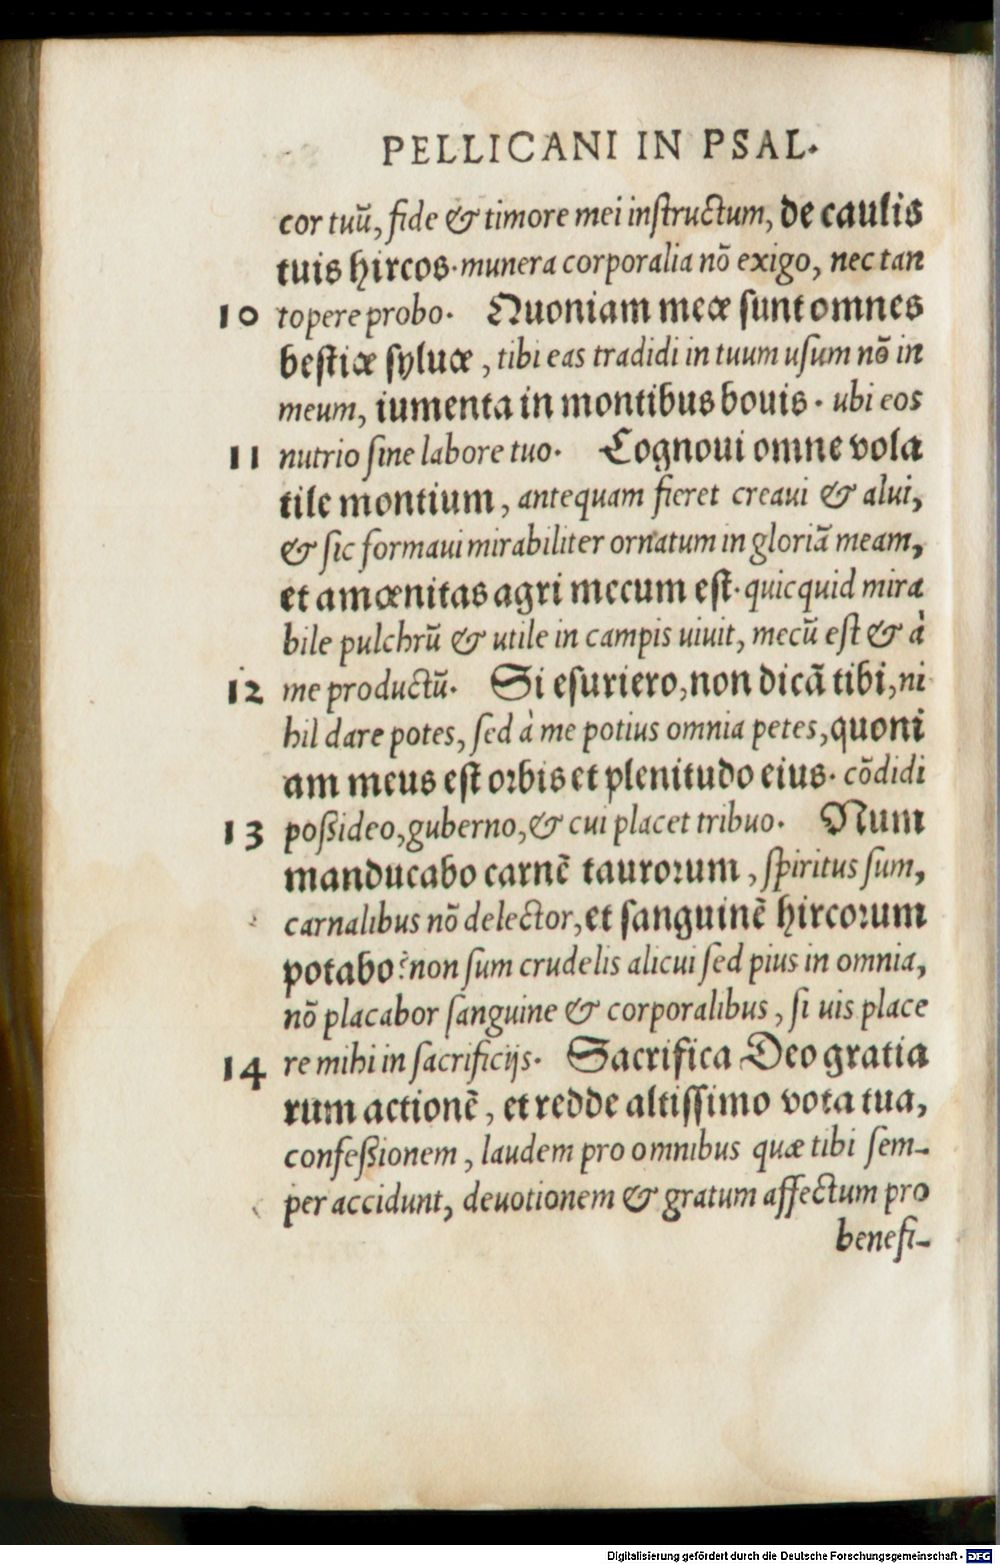 PELLICANI IN PSAL.
cor tuũ, fide & timore mei instructum, de caulis
tuis hircos. munera corporalia nõ exigo, nec tan
10 topere probo. Quoniam meæ sunt omnes
bestiæ syluæ, tibi eas tradidi in tuum usum nõ in
meum, iumenta in montibus bouis. ubi eos
11 nutrio sine labore tuo. Cognoui omne vola
tile montium, antequam fieret creaui & alui,
& sic formaui mirabiliter ornatum in gloriã meam,
et amœnitas agri mecum est. quicquid mira
bile pulchrũ & utile in campis uiuit, mecũ est & à
12 me productũ. Si esuriero, non dicã tibi, ni
hil dare potes, sed à me potius omnia petes, quoni
am meus est orbis et plenitudo eius. cõdidi
13 poßideo, guberno, & cui placet tribuo. Num
manducabo carnẽ taurorum, spiritus sum,
carnalibus nõ delector, et sanguinẽ hircorum
potabo? non sum crudelis alicui sed pius in omnia,
nõ placabor sanguine & corporalibus, si uis place
14 re mihi in sacrificijs. Sacrifica Deo gratia
rum actionẽ, et redde altissimo vota tua,
confeßionem, laudem pro omnibus quæ tibi sem-
per accidunt, deuotionem & gratum affectum pro
benefi-
Digitalisierung gefördert durch die Deutsche Forschungsgemeinschaft - DFG